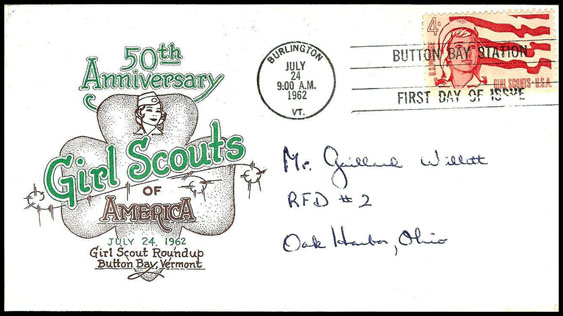 50th
Anniversary
Girl Scouts
OF
AMERICA
JULY 24, 1962
Girl Scout Roundup
Button Bay, Vermont
BURLINGTON
JULY
24
9:00 A.M.
1962
VT.
4¢
GIRL SCOUTS·U.S.A.
BUTTON BAY STATION
FIRST DAY OF ISSUE
Mr. Gaillard Willett
RFD #2
Oak Harbor, Ohio